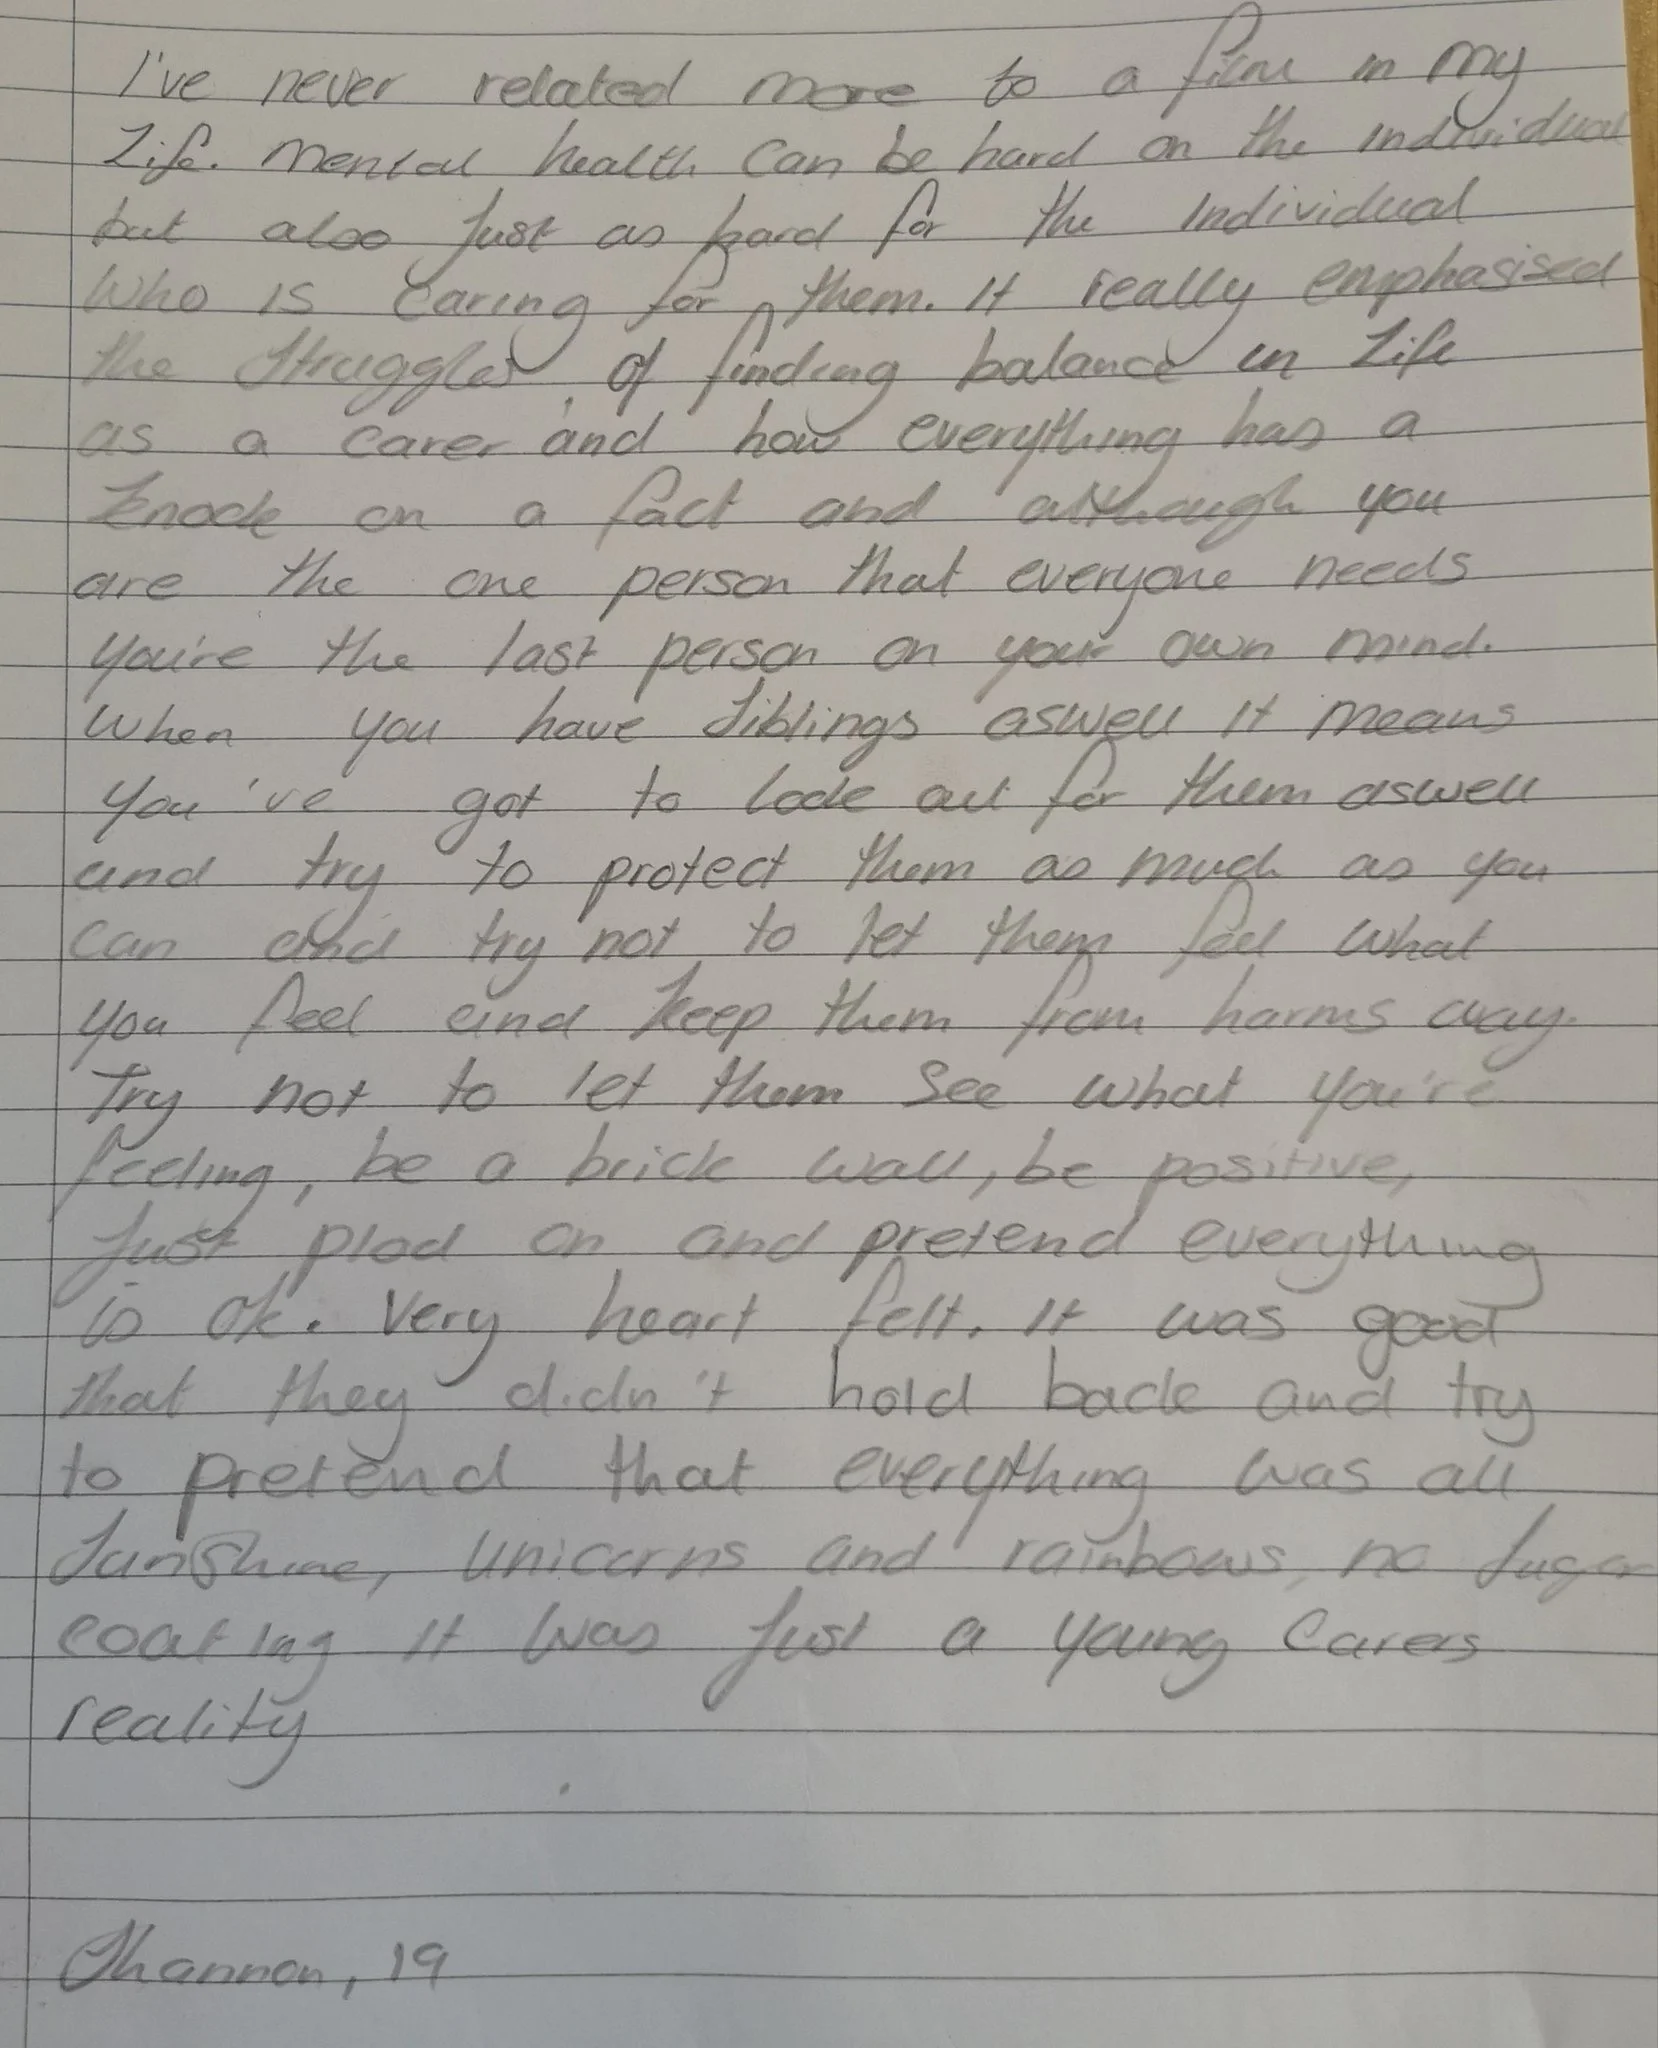 I've never related more to a film in my
Life. Mental health can be hard on the individual
but also Just as hard for the individual
Who is caring for them. It really emphasised
the Struggles of finding balance in Life
as a carer and how everything has a
Knock on a fact and although you
are the one person that everyone needs
you're the last person on your own mind.
When you have Siblings aswell it means
you've got to look out for them aswell
and try to protect them as much as you
can and try not to let them feel what
you feel and keep them from harms way.
Try not to let them see what you're
feeling, be a brick wall, be positive,
Just plod on and pretend everything
is ok. Very heart felt. It was good
that they didn't hold back and try
to pretend that everything was all
Sunshine, unicorns and rainbows, no Sugar
coating it was Just a young Carers
reality
Shannon, 19